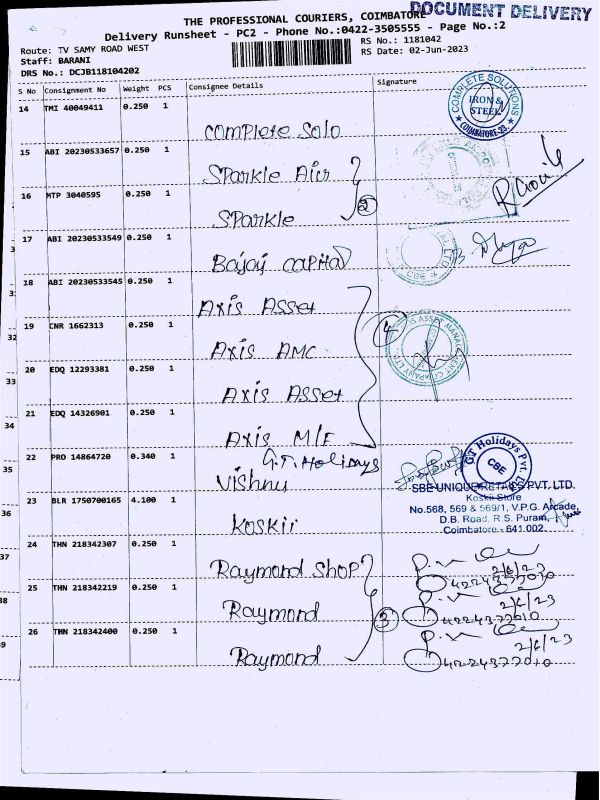 DOCUMENT DELIVERY
THE PROFESSIONAL COURIERS, COIMBATORE
Delivery Runsheet - PC2 - Phone No.:0422-3505555 - Page No.:2
Route: TV SAMY ROAD WEST
Staff: BARANI
DRS No.: DCJB118104202
RS No.: 1181042
RS Date: 02-Jun-2023
S No Consignment No Weight PCS Consignee Details Signature
14 TMI 40049411 0.250 1 Complete Solo
COMPLETE SOLUTIONS IRON & STEEL COIMBATORE-23.
15 ABI 20230533657 0.250 1 Sparkle Air
16 MTP 3040595 0.250 1 Sparkle
2
17 ABI 20230533549 0.250 1 Bajaj capital
CBE
18 ABI 20230533545 0.250 1 Axis Asset
19 CNR 1662313 0.250 1 Axis AMC
4
ASSET MANAGEMENT COMPANY LTD.
20 EDQ 12293381 0.250 1 Axis Asset
21 EDQ 14326901 0.250 1 Axis M/F
22 PRO 14864720 0.340 1 G.T. Holidays
Vishnu
G.T Holidays Pvt. CBE
SBE UNIQUE RETAILS PVT. LTD.
Koskii Store
No.568, 569 & 569/1, V.P.G. Arcade,
D.B. Road, R.S. Puram,
Coimbatore - 641 002.
23 BLR 1750700165 4.100 1 Koskii
24 THN 218342307 0.250 1 Raymond Shop
2/6/23
25 THN 218342219 0.250 1 Raymond
3
2/6/23
04224377010
26 THN 218342400 0.250 1 Raymond
2/6/23
04224377010
32
33
34
35
36
37
38
39